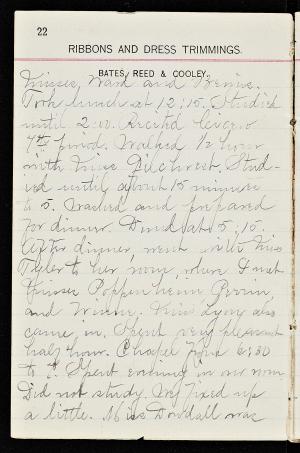 22
RIBBONS AND DRESS TRIMMINGS.
BATES, REED & COOLEY.
Misses Ward and
Took lunch at 12:15. Studied
until 2:00. Recited Cicero
4th period. Walked 1/2 hour
with Miss Gilchrest. Stud-
ied until about 15 minutes
to 5. Washed and prepared
for dinner. Dined at 5:15.
After dinner, went with Miss
Tyler to her room, where I met
Misses Poppenheim
and Miss also
came in. Spent very pleasant
half hour. Chapel from 6:30
to 7. Spent evening in our room.
Did not study. We fixed up
a little. Miss Dowdall was